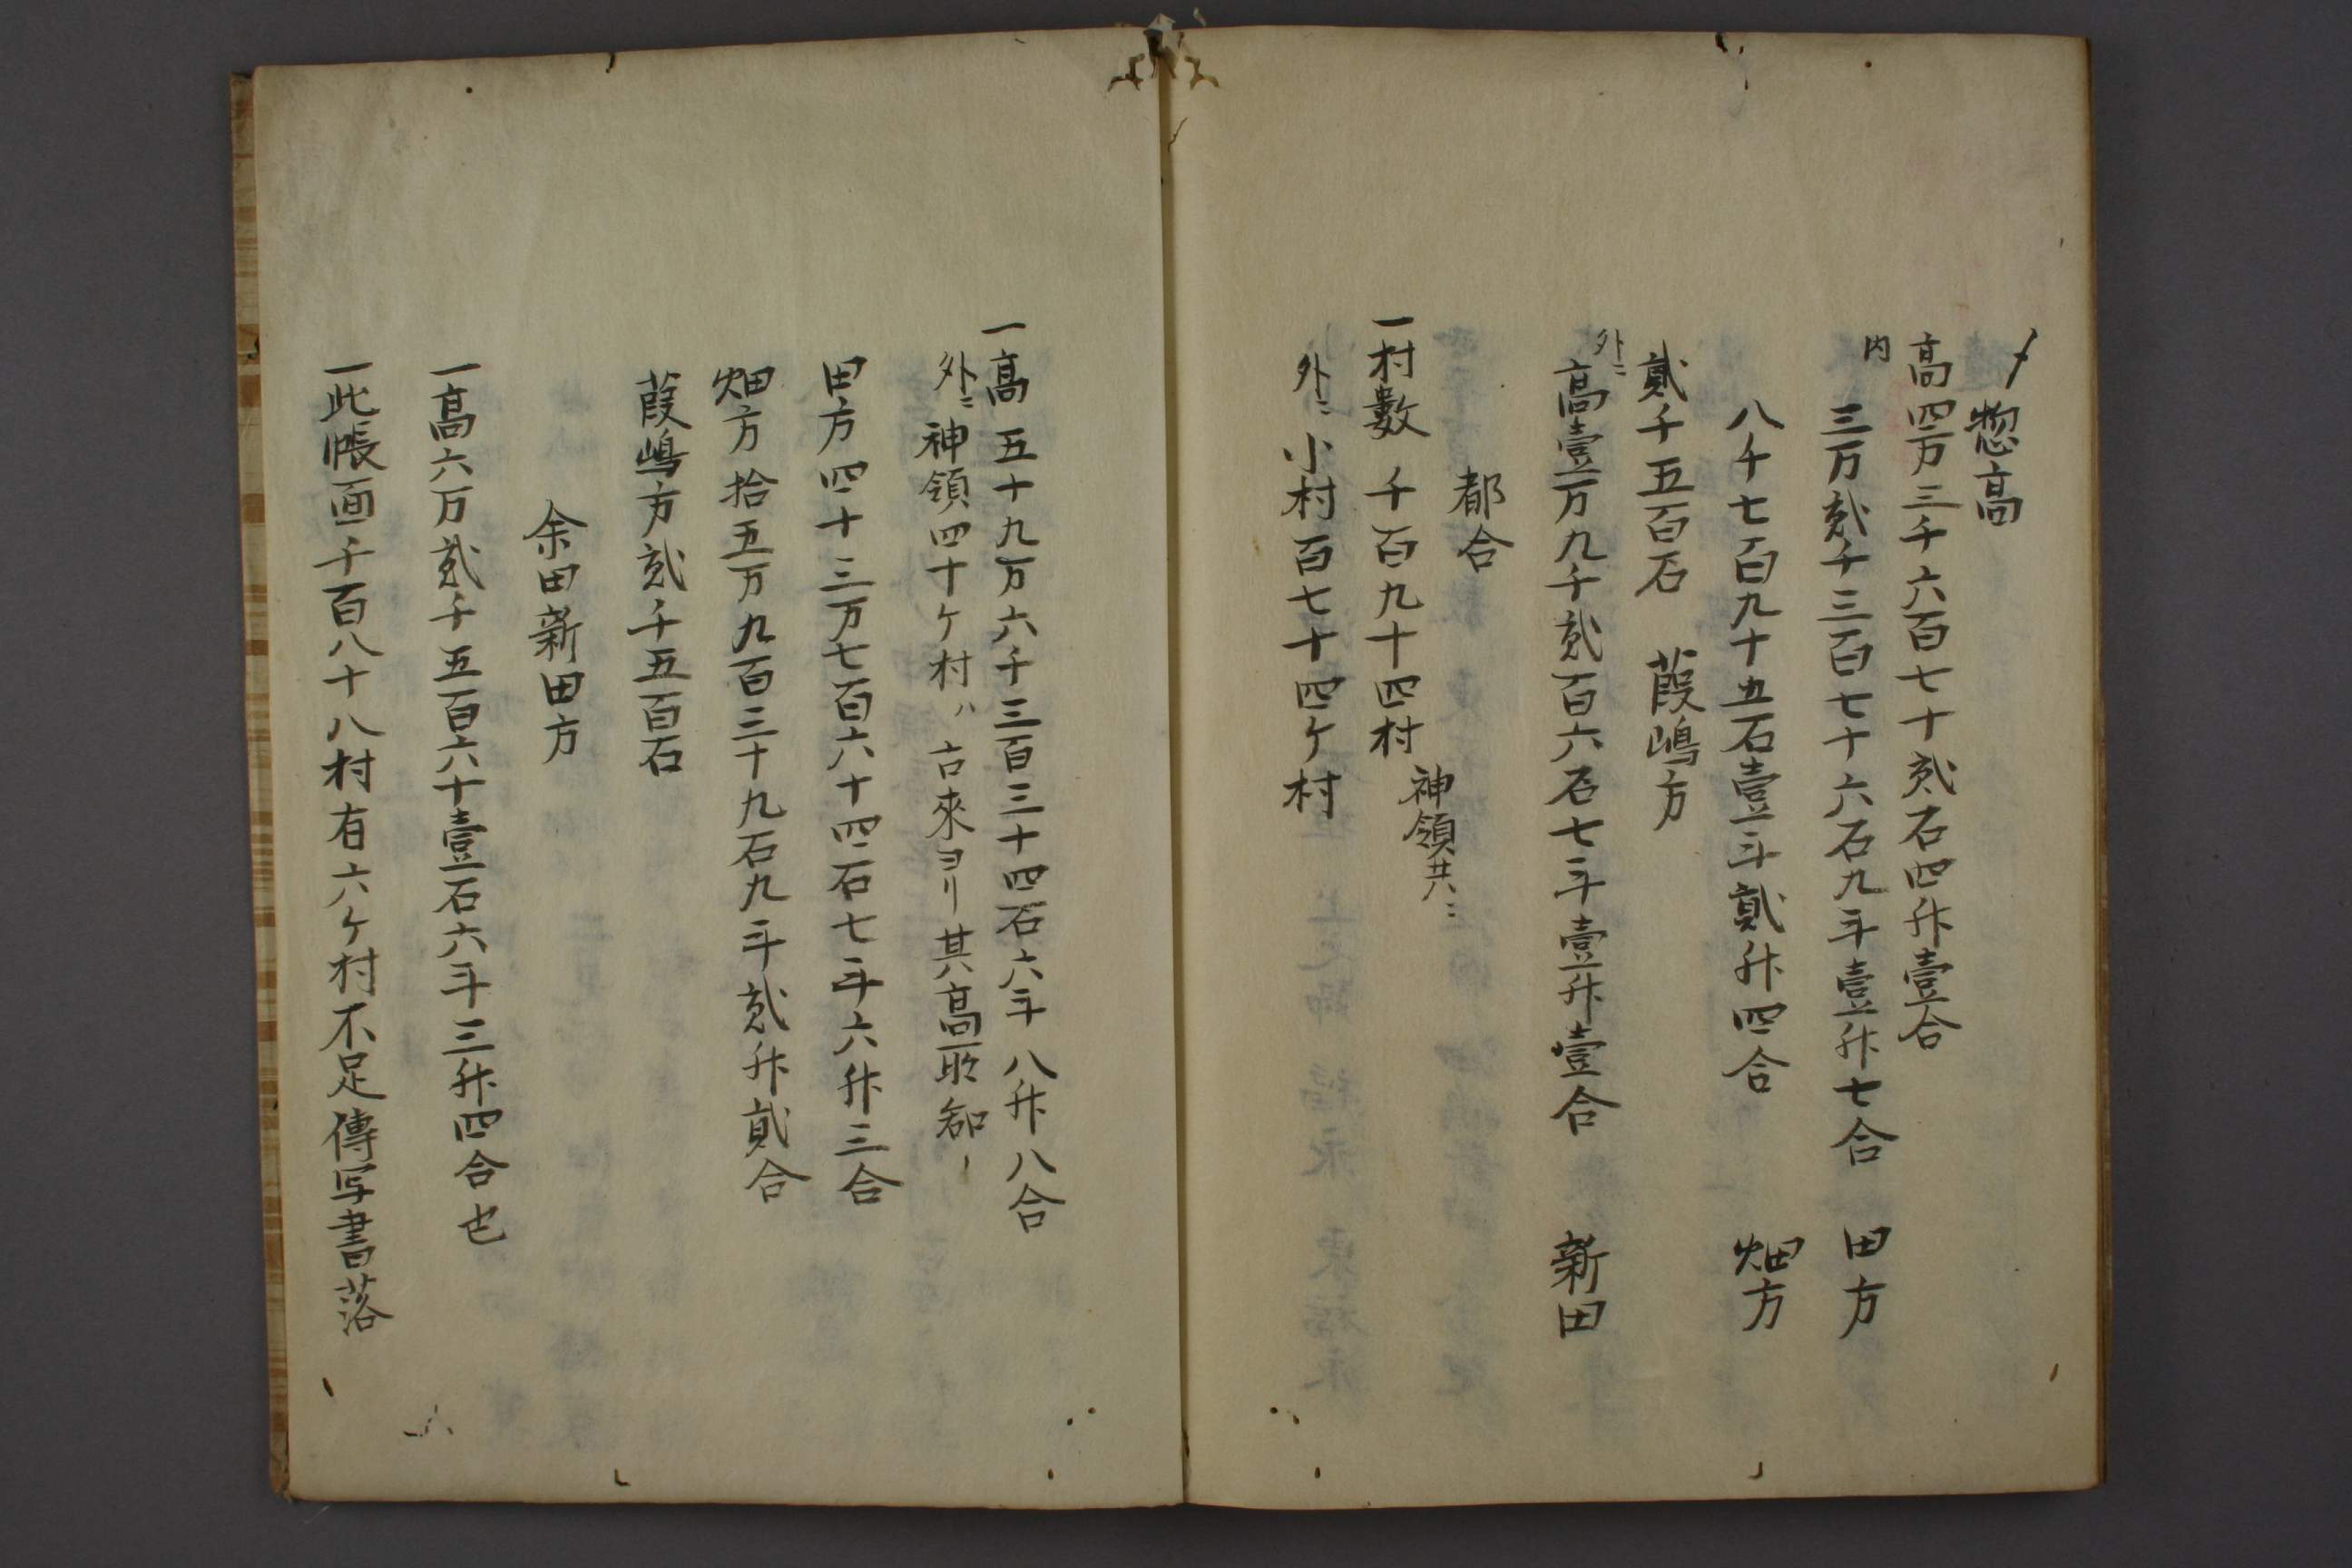 〆惣高
高四万三千六百七十贰石四升壹合
内
三万贰千三百七十六石九斗壹升七合 田方
八千七百九十五石壹斗貳升四合 畑方
貳千五百石 葭嶋方
外ニ
高壹万九千贰百六石七斗壹升壹合 新田
都合
一村數 千百九十四村 神領共ニ
外ニ 小村百七十四ケ村
一高 五十九万六千三百三十四石六斗八升八合
外ニ神領四十ケ村ハ古來ヨリ其高
田方四十三万七百六十四石七斗六升三合
畑方拾五万九百三十九石九斗贰升貳合
葭嶋方贰千五百石
余田新田方
一高六万贰千五百六十壹石六斗三升四合也
一此帳面千百八十八村有六ケ村不足傳写書落